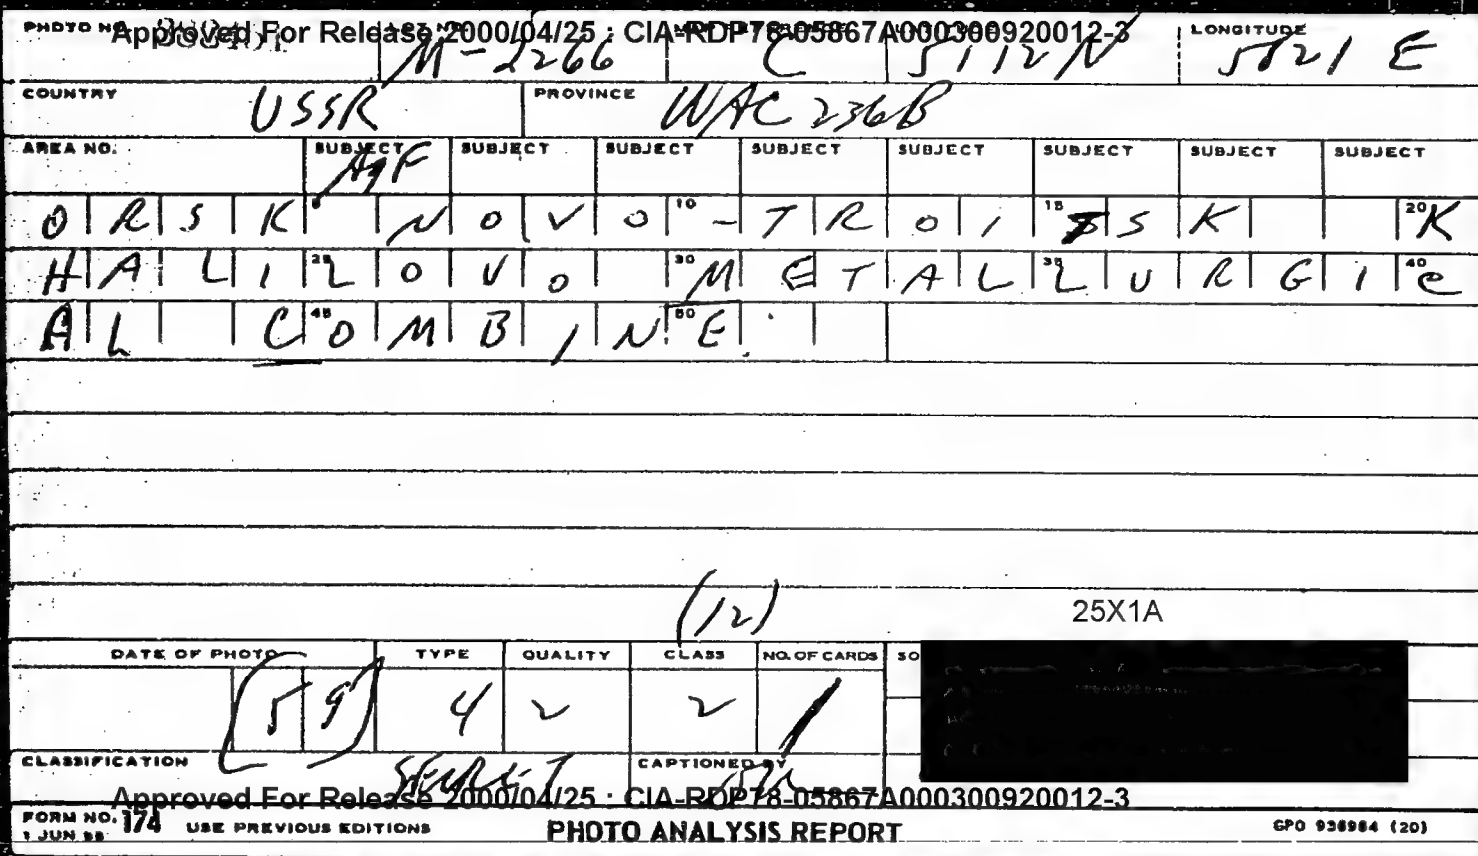 PHOTO NO.
Approved For Release 2000/04/25 : CIA-RDP78-05867A000300920012-3
LONGITUDE
M-2266 C 5112N 5821 E
COUNTRY USSR PROVINCE WAC 236B
AREA NO. SUBJECT SUBJECT SUBJECT SUBJECT SUBJECT SUBJECT SUBJECT SUBJECT
AgF
ORSK NOVO 10 -TROI 15 SSK 20 K
HALI 25 LOVO 30 METAL 35 LURGI 40 C
AL C 45 OMBIN 50 E
(12)
25X1A
DATE OF PHOTO TYPE QUALITY CLASS NO. OF CARDS SO
59 4 2 2 1
CLASSIFICATION SECRET CAPTIONED BY
Approved For Release 2000/04/25 : CIA-RDP78-05867A000300920012-3
FORM NO. 174 USE PREVIOUS EDITIONS PHOTO ANALYSIS REPORT GPO 936984 (20)
1 JUN